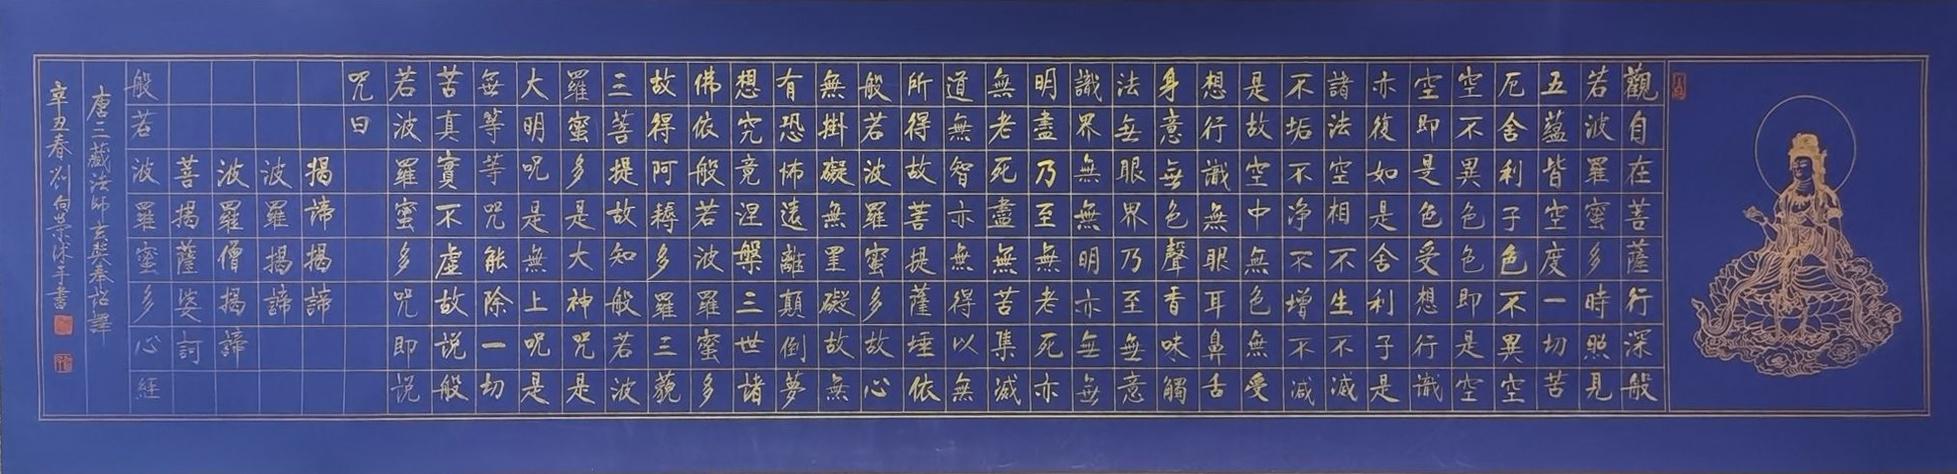 觀自在菩薩行深般
若波羅蜜多時照見
五蘊皆空度一切苦
厄舍利子色不異空
空不異色色即是空
空即是色受想行識
亦復如是舍利子是
諸法空相不生不滅
不垢不净不增不减
是故空中無色無受
想行識無眼耳鼻舌
身意無色聲香味觸
法無眼界乃至無意
識界無無明亦無無
明盡乃至無老死亦
無老死盡無苦集滅
道無智亦無得以無
所得故菩提薩埵依
般若波羅蜜多故心
無掛礙無罣礙故無
有恐怖遠離顛倒夢
想究竟涅槃三世諸
佛依般若波羅蜜多
故得阿耨多羅三藐
三菩提故知般若波
羅蜜多是大神咒是
大明咒是無上咒是
無等等咒能除一切
苦真實不虛故説般
若波羅蜜多咒即説
咒曰
揭諦揭諦
波羅揭諦
波羅僧揭諦
菩揭薩婆訶
般若波羅蜜多心經
唐三藏法師玄奘奉詔譯
辛丑春劉向榮沐手書